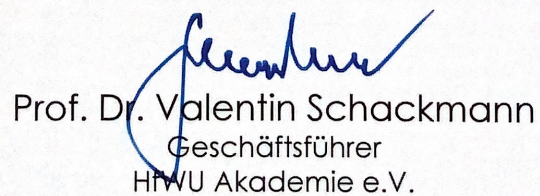 Prof. Dr. Valentin Schackmann
Geschäftsführer
HfWU Akademie e.V.